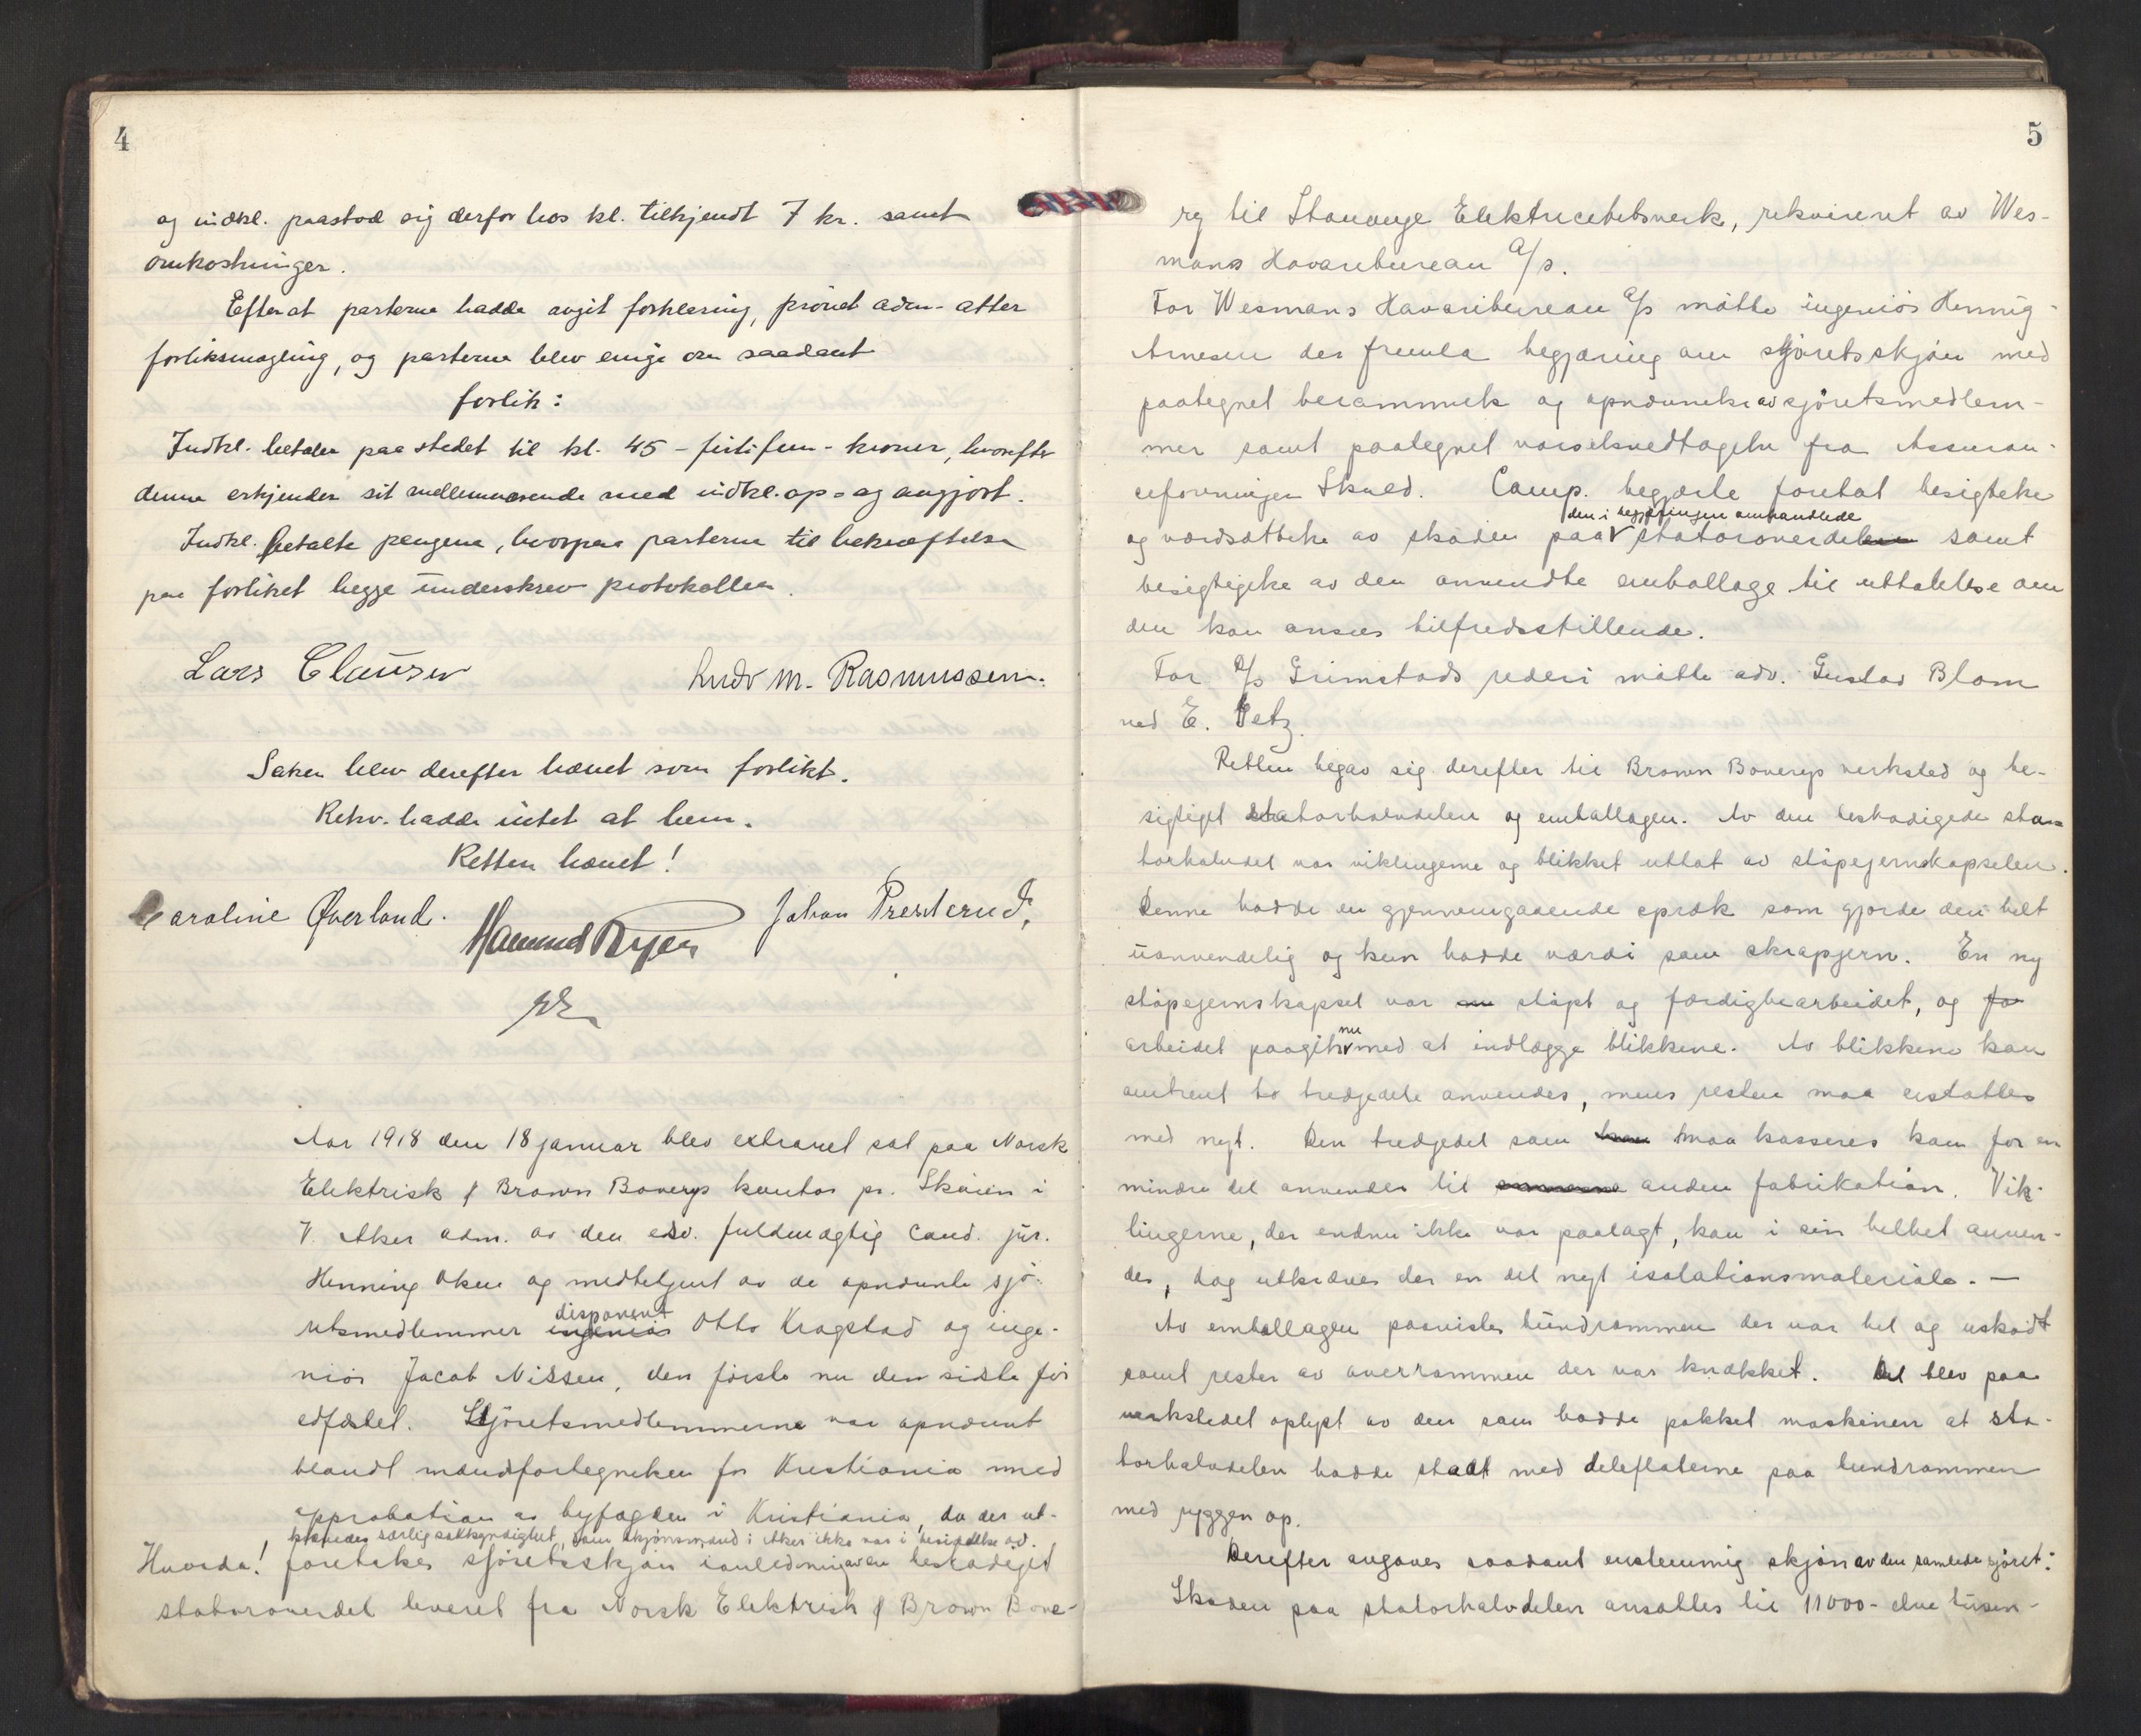 4
og indkl. paastod sig derfor hos kl. tilkjendt 7 kr. samt
omkostninger.
Efterat parterne hadde avgit forklaring, prövet adm. atter
forliksmægling, og parterne blev enige om saadant
forlik:
Indkl. betaler paa stedet til kl. 45 - förtifem - kroner, hvorefter
denne erkjender sit mellemværende med indkl. op- og avgjort.
Indkl. betalte pengene, hvorpaa parterne til bekræftelse
paa forliket begge underskrev protokollen.
Lars Clausen Ludv M. Rasmussen.
Saken blev derefter hævet som forlikt.
Rekv. hadde intet at bem.
Retten hævet!
Caroline Øverland. Johan Presterud,
Aar 1918 den 18 januar blev extraret sat paa Norsk
Elektrisk & Brown Boverys kontor pr. Sköien i
V. Aker adm. av den edsv. fuldmægtig cand. jur.
Henning Oken og medbetjent av de opnævnte sjö-
disponent
retsmedlemmer ingeniör Otto Kragstad og inge-
niör Jacob Nissen, den förste nu den sidste för
edfæstet. Sjöretsmedlemmerne var opnævnt
blandt mandsfortegnelsen for Kristiania med
approbation av byfogden i Kristiania, da der ut-
krævedes særlig sakkyndighet, som skjönsmænd i Aker ikke var i besiddelse av.
Hvorda! foretokes sjöretsskjön i anledning av en beskadiget
statoroverdel leveret fra Norsk Elektrisk & Brown Bove-
5
ry til Stavanger Elektricitetsverk, rekvireret av Wes-
mans Havaribureau A/S.
For Wesmans Havaribureau A/S mötte ingeniör Hennig-
Arnesen der fremla begjæring om sjöretsskjön med
paategnet berammelse og opnævnelse av sjöretsmedlem-
mer samt paategnet varselsvedtagelse fra Assuran-
ceforeningen Skuld. Comp. begjærte foretat besigtelse
den i begjæringen omhandlede
og værdsættelse av skaden paa statoroverdelen samt
besigtigelse av den anvendte emballage til uttalelse om
den kan ansees tilfredsstillende.
For A/S Grimstads rederi mötte adv. Gustav Blom
ved E. Vetz.
Retten begav sig derefter til Brown Boverys verksted og be-
sigtiget statorhalvdelen og emballagen. Av den beskadigede sta-
torhalvdel var viklingerne og blikket uttat av stöpejernskapselen.
Denne hadde en gjennemgaaende spræk som gjorde den helt
uanvendelig og kun hadde værdi som skrapjern. En ny
stöpejernskapsel var en stöpt og færdigbearbeidet, og fo
nu
arbeidet paagik med at indlægge blikkene. Av blikkene kan
omtrent to tredjedele anvendes, mens resten maa erstattes
med nyt. Den tredjedel som kan maa kasseres kan for en
mindre del anvendes til anden fabrikation. Vik-
lingerne, der endnu ikke var paalagt, kan i sin helhet anven-
des, dog utkræves der en del nyt isolationsmateriale. —
Av emballagen paavistes bundrammen der var hel og uskadt
samt rester av overrammen der var knækket. Det blev paa
verkstedet oplyst av den som hadde pakket maskinen at sta-
torhalvdelen hadde staat med deleflaterne paa bundrammen
med ryggen op.
Derefter avgaves saadant enstemmig skjön av den samlede sjöret:
Skaden paa statorhalvdelen ansattes til 11000 - elve tusen-